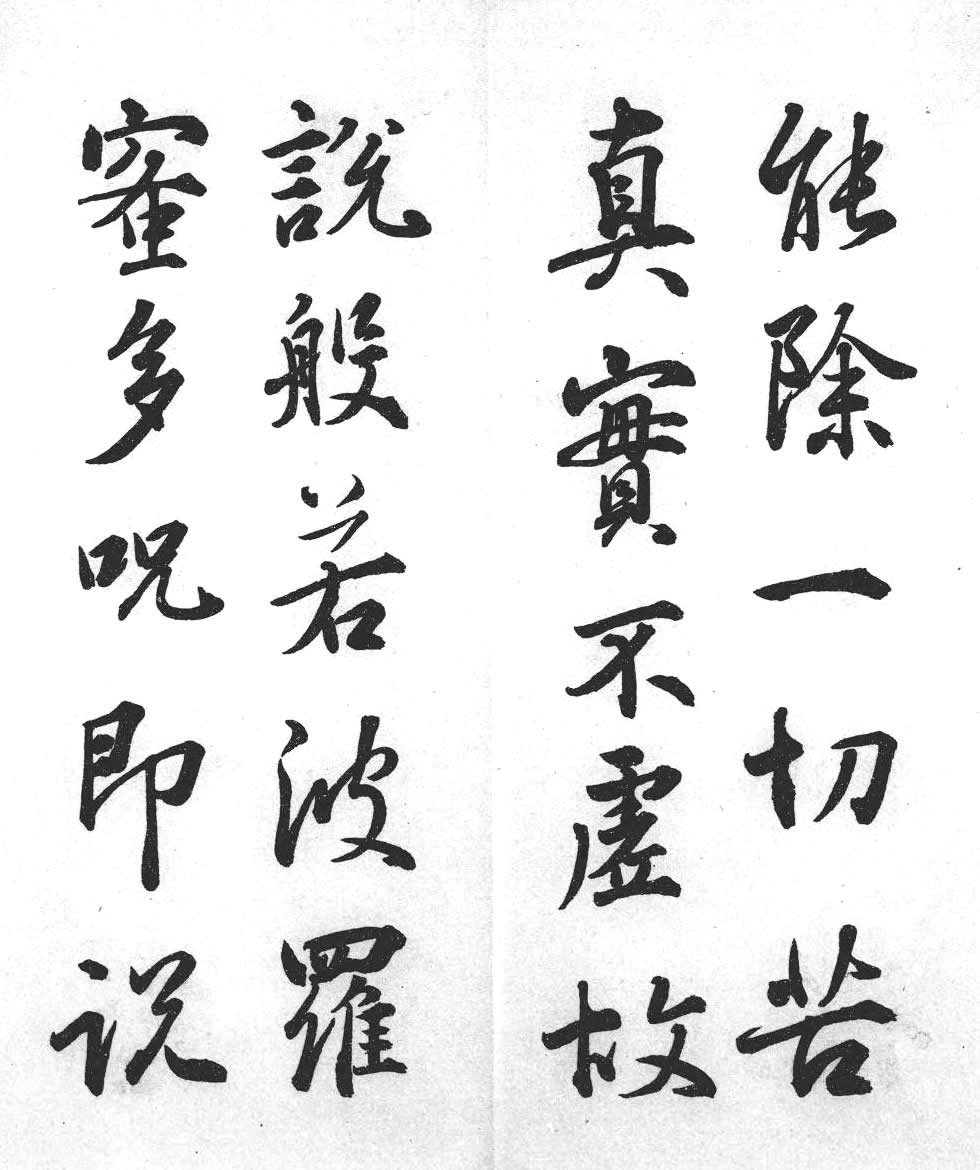 能除一切苦
真實不虛故
說般若波羅
蜜多呪即說